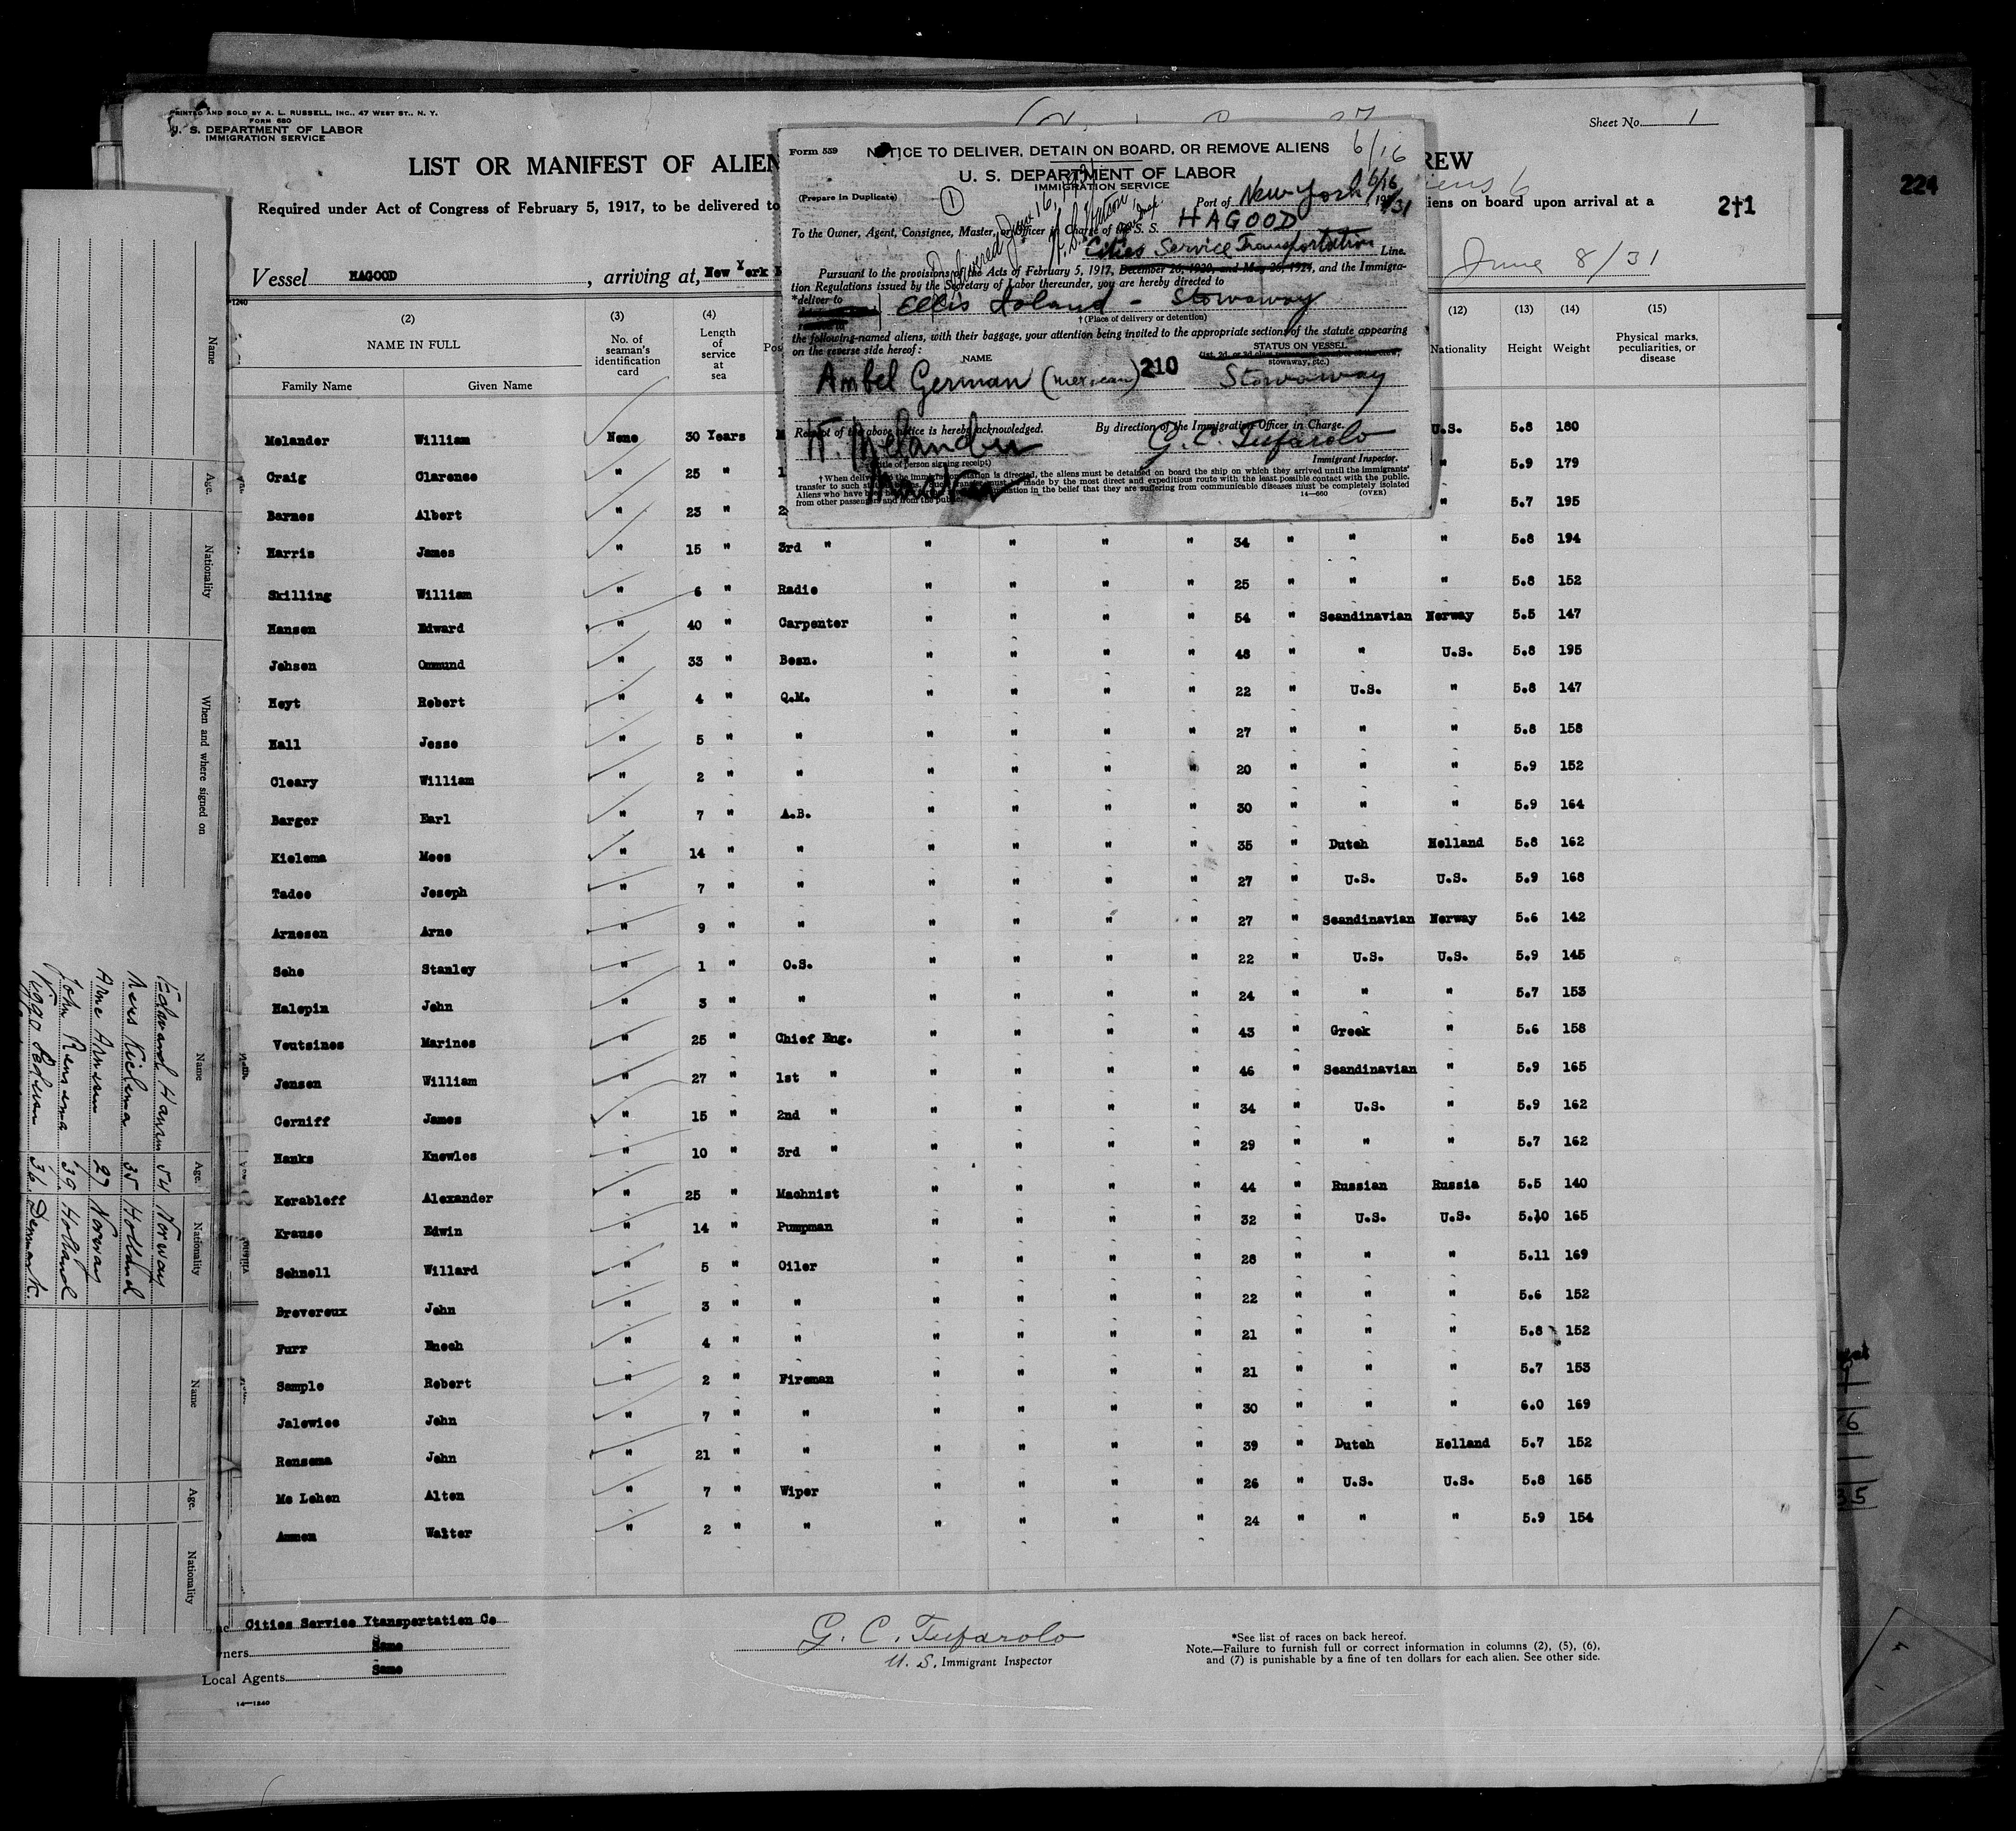 PRINTED AND SOLD BY A. L. RUSSELL, INC., 47 WEST ST., N. Y.
FORM 680
U. S. DEPARTMENT OF LABOR
IMMIGRATION SERVICE
Sheet No. 1
LIST OR MANIFEST OF ALIEN
REW
224
Required under Act of Congress of February 5, 1917, to be delivered to
iens on board upon arrival at a
2†1
Vessel HAGOOD, arriving at, New York
June 8/31
Form 559
NOTICE TO DELIVER, DETAIN ON BOARD, OR REMOVE ALIENS
6/16
U. S. DEPARTMENT OF LABOR
IMMIGRATION SERVICE
(Prepare in Duplicate)
1
Port of New York 6/16 1931
Delivered June 16,
To the Owner, Agent, Consignee, Master, or Officer in Charge of the S. S. HAGOOD
Cities Service Transportation Line.
Pursuant to the provisions of the Acts of February 5, 1917, December 26, 1920, and May 26, 1924, and the Immigra-
tion Regulations issued by the Secretary of Labor thereunder, you are hereby directed to
*deliver to
Ellis Island - Stowaway
†(Place of delivery or detention)
the following-named aliens, with their baggage, your attention being invited to the appropriate sections of the statute appearing
on the reverse side hereof:
NAME
STATUS ON VESSEL
stowaway, etc.)
Ambel German (Mexican) 210 Stowaway
Receipt of the above notice is hereby acknowledged.
By direction of the Immigration Officer in Charge.
W. Melander
G. C. Tufarolo
(Title of person signing receipt)
Immigrant Inspector.
Master
†When delivery to the immigration station is directed, the aliens must be detained on board the ship on which they arrived until the immigrants'
transfer to such made by the most direct and expeditious route with the least possible contact with the public.
Aliens who have in the belief that they are suffering from communicable diseases must be completely isolated
from other passengers and from the public.
14—660 (OVER)
1240
(2) (3) (4) (12) (13) (14) (15)
NAME IN FULL
No. of seaman's identification card
Length of service at sea
Nationality Height Weight
Physical marks, peculiarities, or disease
Family Name Given Name
Melander William None 30 Years U.S. 5.8 180
Craig Clarence " 25 " " 5.9 179
Barnes Albert " 23 " " 5.7 195
Harris James " 15 " 3rd " " " " " 34 " " " 5.8 194
Skilling William " 6 " Radio " " " " 25 " " " 5.8 152
Hansen Edward " 40 " Carpenter " " " " 54 " Scandinavian Norway 5.5 147
Johsen Ommund " 33 " Bosn. " " " " 48 " " U.S. 5.8 195
Hoyt Robert " 4 " Q.M. " " " " 22 " U.S. " 5.8 147
Hall Jesse " 5 " " " " " " 27 " " " 5.8 158
Cleary William " 2 " " " " " " 20 " " " 5.9 152
Barger Earl " 7 " A.B. " " " " 30 " " " 5.9 164
Kielema Mees " 14 " " " " " " 35 " Dutch Holland 5.8 162
Tadee Joseph " 7 " " " " " " 27 " U.S. U.S. 5.9 168
Arnesen Arne " 9 " " " " " " 27 " Scandinavian Norway 5.6 142
Soho Stanley " 1 " O.S. " " " " 22 " U.S. U.S. 5.9 145
Halepin John " 3 " " " " " " 24 " " " 5.7 153
Voutsines Marinos " 25 " Chief Eng. " " " " 43 " Greek " 5.6 158
Jensen William " 27 " 1st " " " " " 46 " Scandinavian " 5.9 165
Corniff James " 15 " 2nd " " " " " 34 " U.S. " 5.9 162
Hanks Knowles " 10 " 3rd " " " " " 29 " " " 5.7 162
Korabloff Alexander " 25 " Machnist " " " " 44 " Russian Russia 5.5 140
Krause Edwin " 14 " Pumpman " " " " 32 " U.S. U.S. 5.10 165
Schnell Willard " 5 " Oiler " " " " 28 " " " 5.11 169
Brevereux John " 3 " " " " " " 22 " " " 5.6 152
Furr Enoch " 4 " " " " " " 21 " " " 5.8 152
Sample Robert " 2 " Fireman " " " " 21 " " " 5.7 153
Jalowiec John " 7 " " " " " " 30 " " " 6.0 169
Rensema John " 21 " " " " " 39 " Dutch Holland 5.7 152
Mc Lehon Alton " 7 " Wiper " " " " 26 " U.S. U.S. 5.8 165
Ammon Walter " 2 " " " " " " 24 " " " 5.9 154
Cities Service Ytansportation Co
wners Same
Local Agents Same
14—1240
G. C. Tufarolo
U. S. Immigrant Inspector
*See list of races on back hereof.
Note.—Failure to furnish full or correct information in columns (2), (5), (6),
and (7) is punishable by a fine of ten dollars for each alien. See other side.
Name Age. Nationality When and where signed on
Name Age. Nationality
Edward Hansen 54 Norway
Mees Kielema 35 Holland
Arne Arnesen 27 Norway
John Rensema 39 Holland
Viggo Pedersen 36 Denmark.
Name Age. Nationality
35